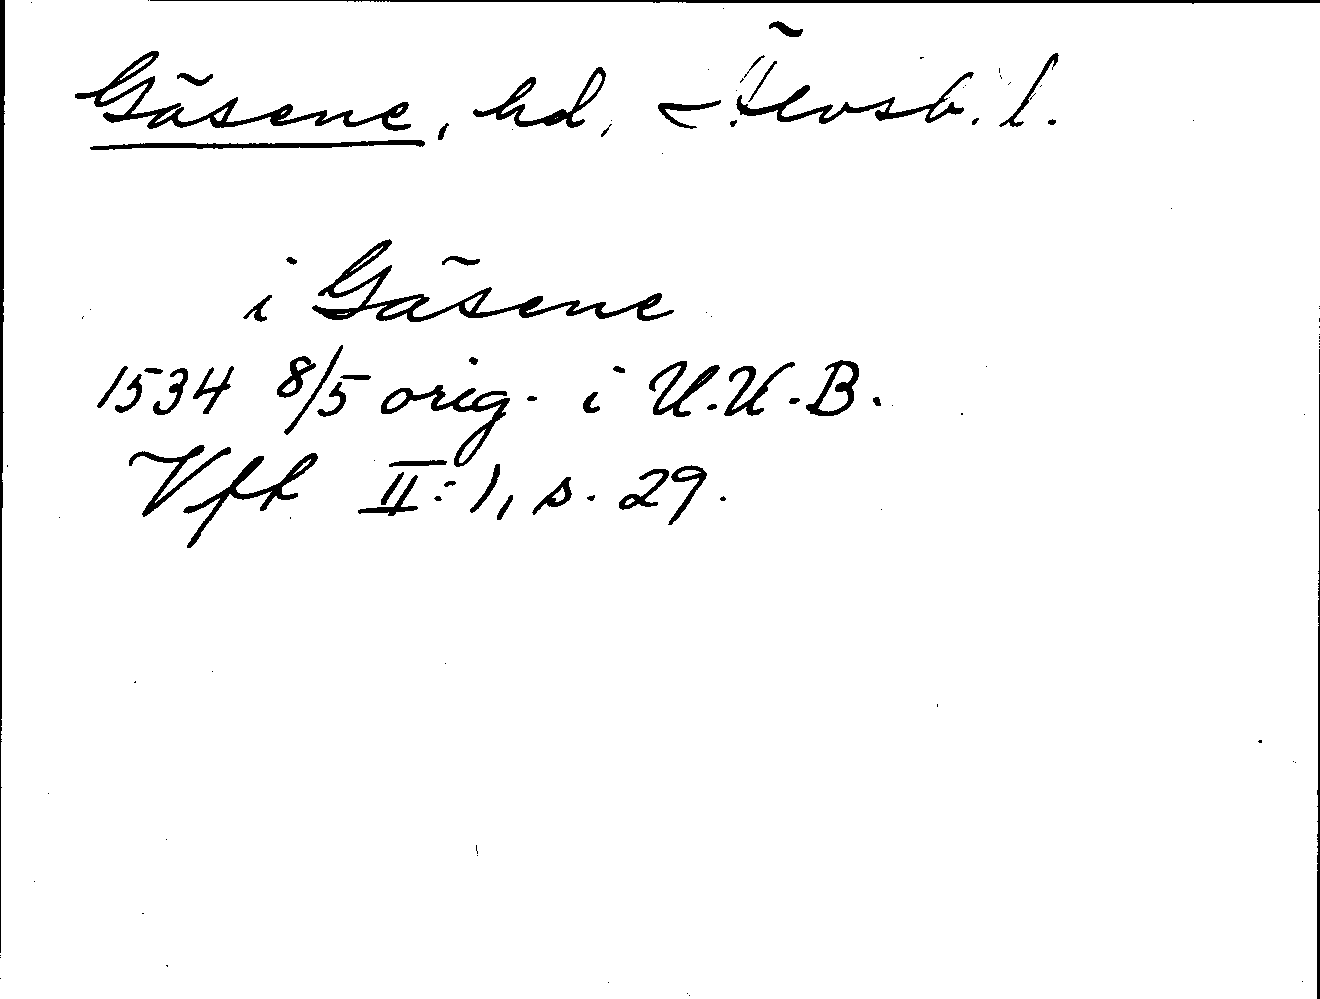 Gäsene, hd, Älvsb. l.
i Gäsene
1534 8/5 orig. i U.U.B.
Vfh II:1, s. 29.